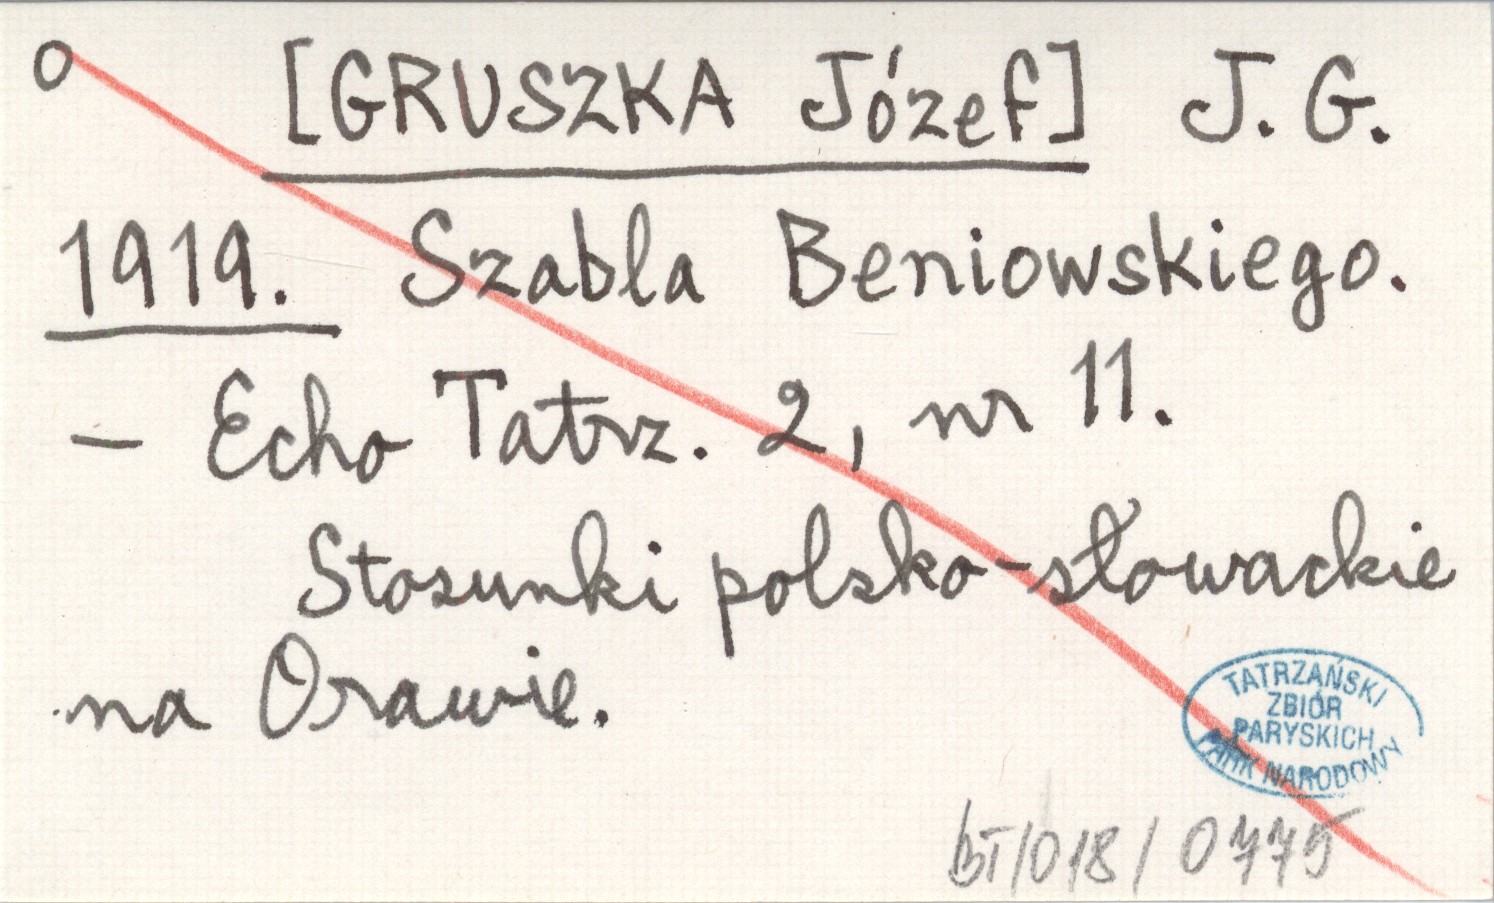 O [GRUSZKA Józef] J. G.
1919. Szabla Beniowskiego.
– Echo Tatrz. 2, nr 11.
Stosunki polsko-słowackie
na Orawie.
TATRZAŃSKI
ZBIÓR
PARYSKICH
PARK NARODOWY
BT/018/0775